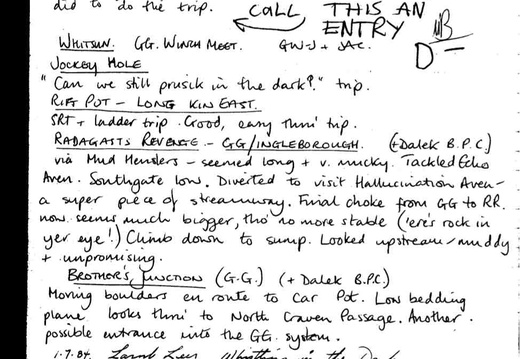 did to do the trip. CALL THIS AN ENTRY
WHITSUN. GG. WINCH MEET. GW-J + JAC.
JOCKEY HOLE
"Can we still prusik in the dark?" trip.
RIFT POT - LONG KIN EAST.
SRT + ladder trip. Good, easy thro' trip.
RADAGASTS REVENGE - GG/INGLEBOROUGH. (+Dalek B.P.C.)
via Mud Henslers - seemed long + v. mucky. Tackled Echo
Aven. Southgate low. Diverted to visit Hallucination Aven -
a super piece of streamway. Final choke from GG to RR.
now seems much bigger, tho' no more stable ('ere's rock in
yer eye!) Climb down to sump. Looked upstream - muddy
+ unpromising.
BROTHER'S JUNCTION (G.G.) (+ Dalek B.P.C.)
Moving boulders en route to Car Pot. Low bedding
plane looks thro' to North Craven Passage. Another
possible entrance into the GG system.
1.7.84.